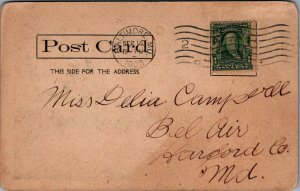 Post Card
THIS SIDE FOR THE ADDRESS
BALTIMORE, MD.
2
Miss Delia Campbell
Bel Air
Harford Co.
Md.